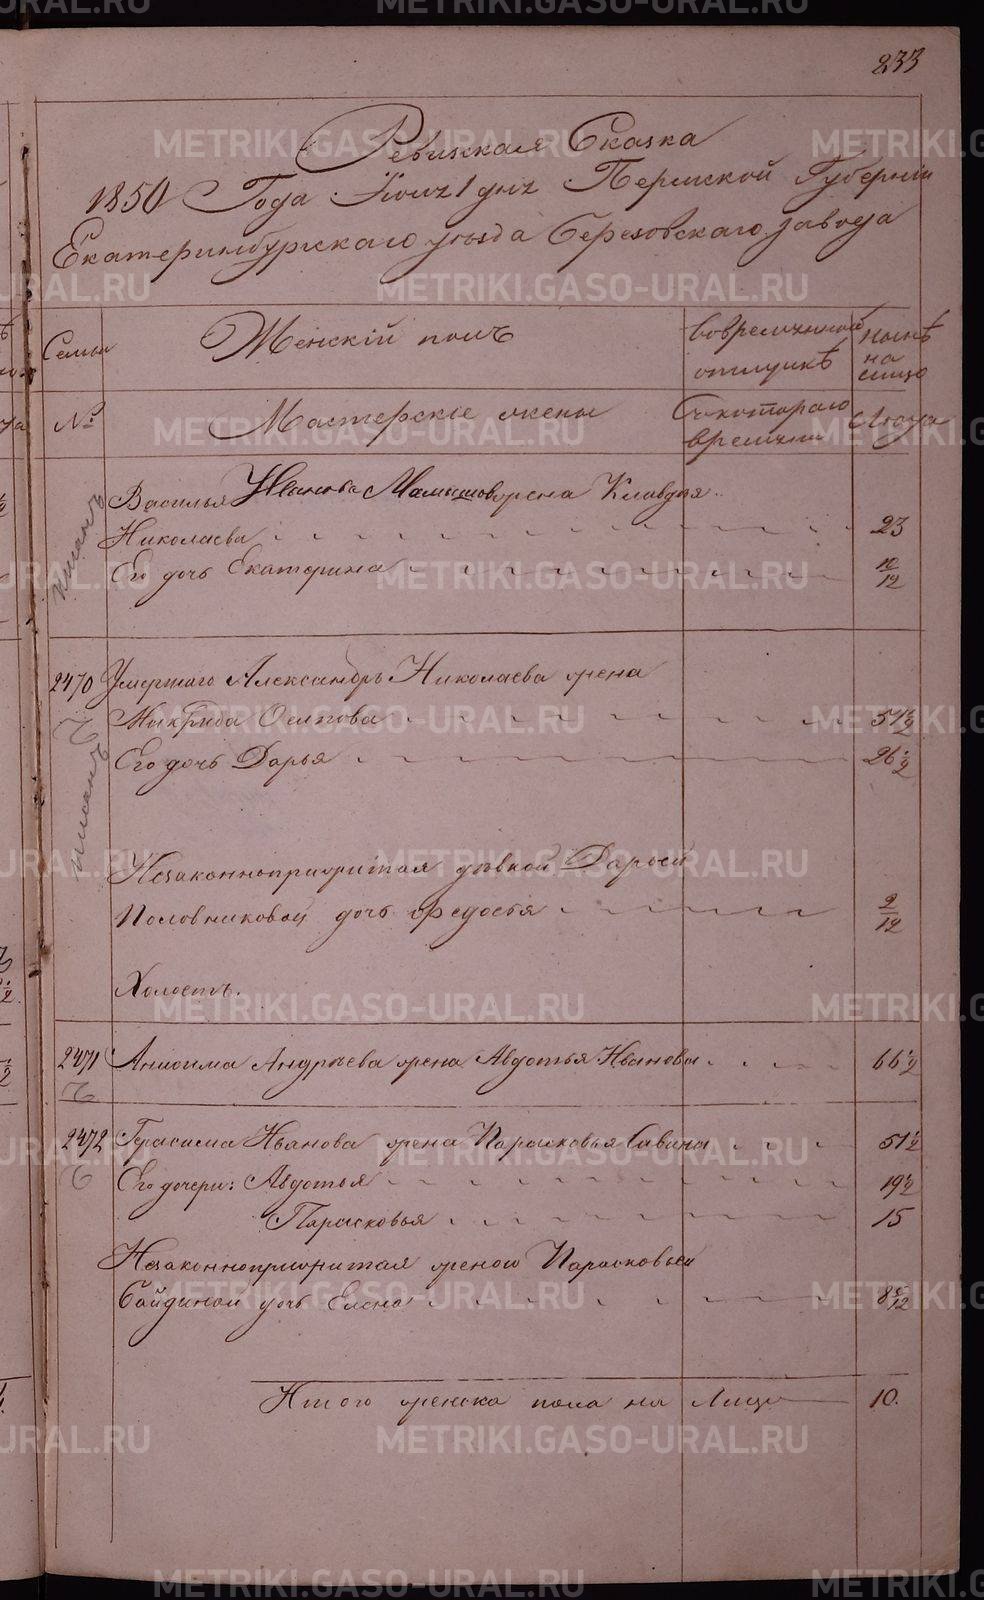 233
Ревизская Сказка
1850 Года Іюня 1 дня Пермской Губерніи
Екатеринбургскаго уѣзда Березовскаго завода
Семьи
Женскій полъ
во временной отлучкѣ
нынѣ на лицо
№
Мастерскіе жены
Съ котораго времени
Лѣта
Василья Иванова жена Клавдія
Николаева 23
Его дочь Екатерина 12
писанъ
2470 Умершаго Александръ Николаева жена
Осипова 51 1/2
Его дочь Дарья 26 1/2
писанъ
Незаконноприжитая дѣвкой Дарьей
Половниковой дочь Федосья 9/12
Холостъ.
2471 Анисима Андреева жена Авдотья Иванова 66 1/2
2472 Герасима Иванова жена Парасковья Савина 51 1/2
Его дочери: Авдотья 19 1/2
Парасковья 15
Незаконноприжитая женою Парасковьей
дочь Елена
Итого женска пола на Лицо 10.
METRIKI.GASO-URAL.RU